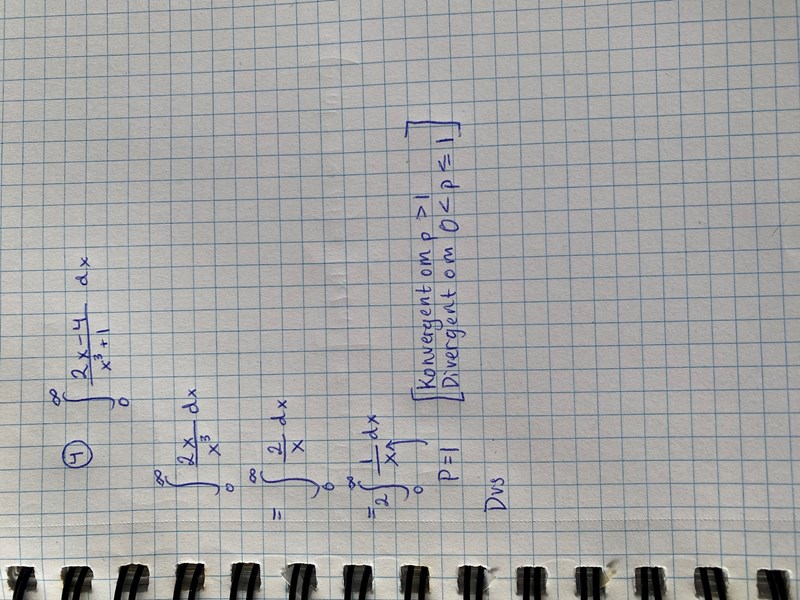 ④ ∫₀^∞ (2x-4)/(x³+1) dx
∫₀^∞ 2x/x³ dx
= ∫₀^∞ 2/x dx
= 2 ∫₀^∞ 1/x dx
P=1 [Konvergent om p > 1
Divergent om 0 < p ≤ 1]
Dvs